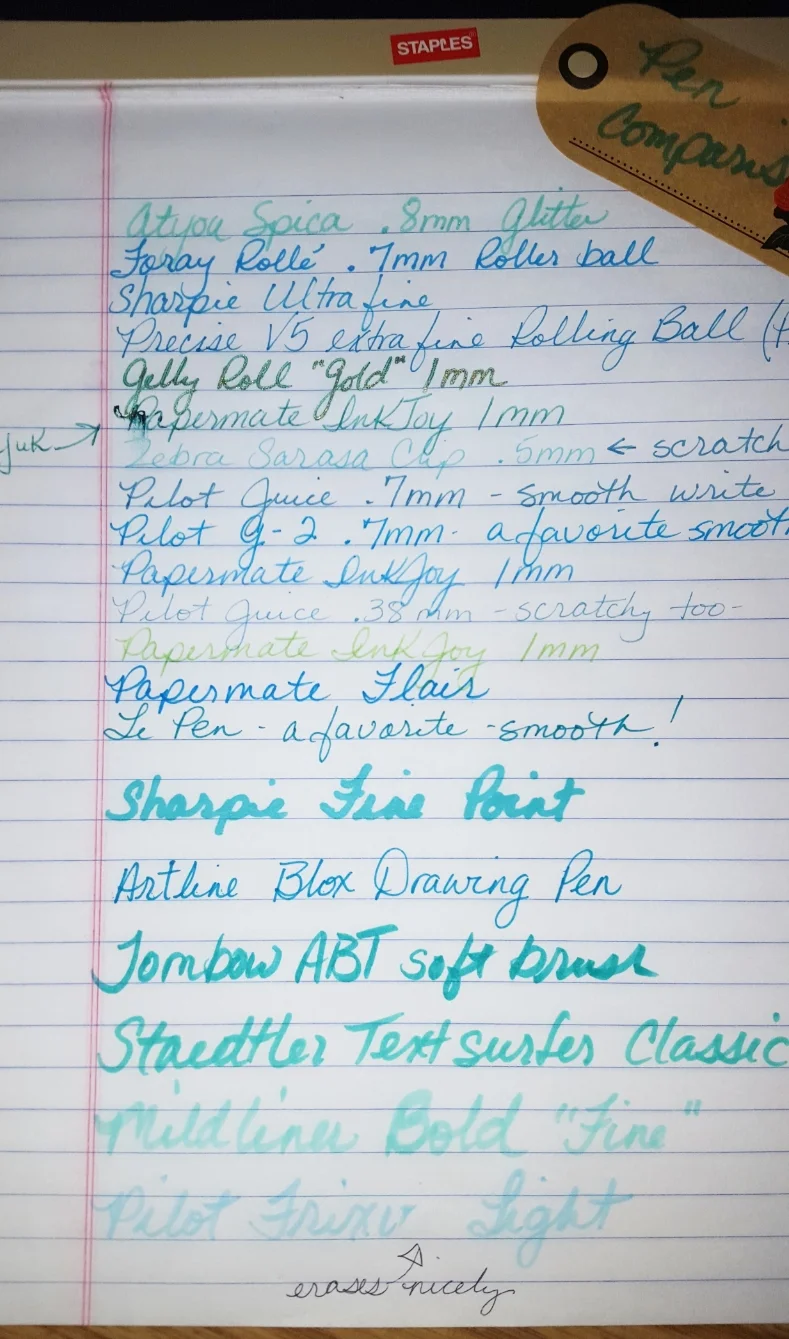 STAPLES
Pen
Comparis
atyou Spica .8mm Glitter
Foray Rollé .7mm Roller ball
Sharpie Ultra fine
Precise V5 extra fine Rolling Ball (
Gelly Roll "gold" 1mm
Papermate InkJoy 1mm
yuk →
Zebra Sarasa Clip .5mm ← scratch
Pilot Juice .7mm - smooth write
Pilot G-2 .7mm - a favorite smoot
Papermate InkJoy 1mm
Pilot Juice .38 mm - scratchy too -
Papermate Ink Joy 1mm
Papermate Flair
Le Pen - a favorite - smooth!
Sharpie Fine Point
Artline Blox Drawing Pen
Tombow ABT soft brush
Staedtler Textsurfer Classic
Mildliner Bold "Fine"
Pilot Frixv Light
erases nicely